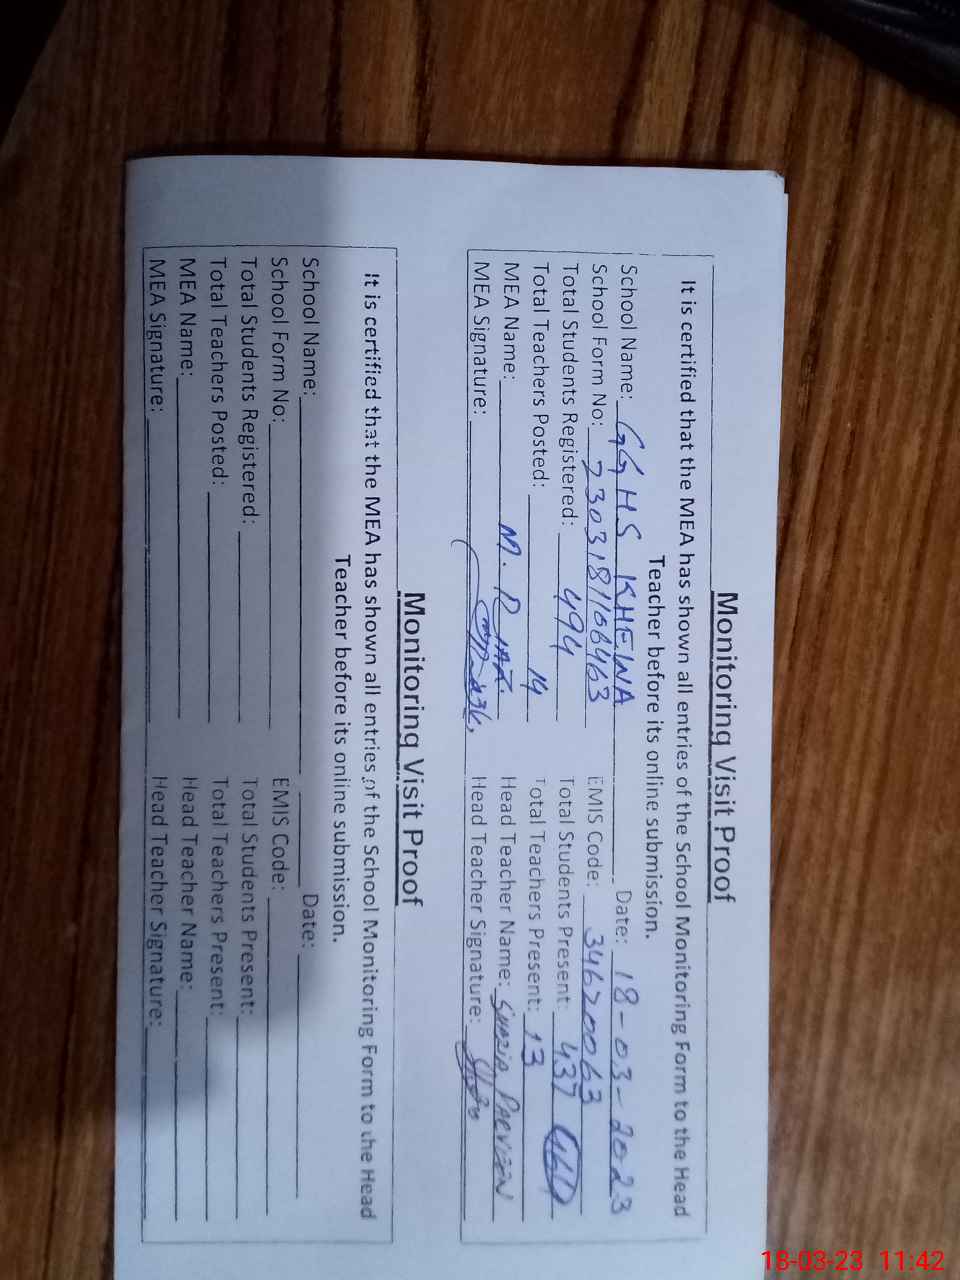 Monitoring Visit Proof
It is certified that the MEA has shown all entries of the School Monitoring Form to the Head
Teacher before its online submission.
School Name: GGHS KHEWA Date: 18-03-2023
School Form No: 230318110846 3 EMIS Code: 34620063
Total Students Registered: 494 Total Students Present: 437
Total Teachers Posted: 14 Total Teachers Present: 13
MEA Name: M. RIAZ. Head Teacher Name: SHAZIA PARVEEN
MEA Signature: Head Teacher Signature:
Monitoring Visit Proof
It is certified that the MEA has shown all entries of the School Monitoring Form to the Head
Teacher before its online submission.
School Name: Date:
School Form No: EMIS Code:
Total Students Registered: Total Students Present:
Total Teachers Posted: Total Teachers Present:
MEA Name: Head Teacher Name:
MEA Signature: Head Teacher Signature:
18-03-23 11:42